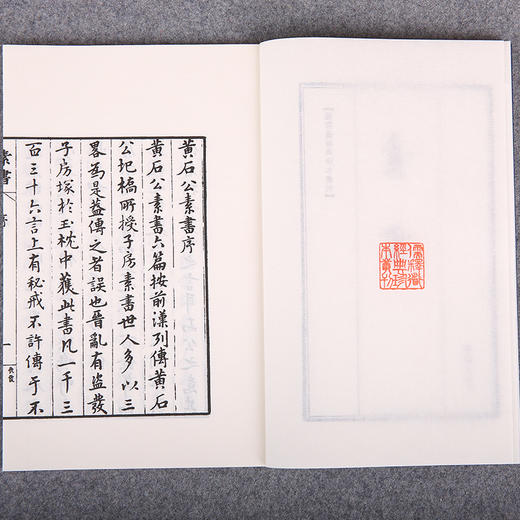 儒釋道
經典珍
本叢刊
黄石公素書序
黄石公素書六篇按前漢列傳黄石
公圯橋所授子房素書世人多以三
畧為是蓋傳之者誤也晉亂有盜發
子房塚於玉枕中獲此書凡一千三
百三十六言上有秘戒不許傳于不
素書
序
一